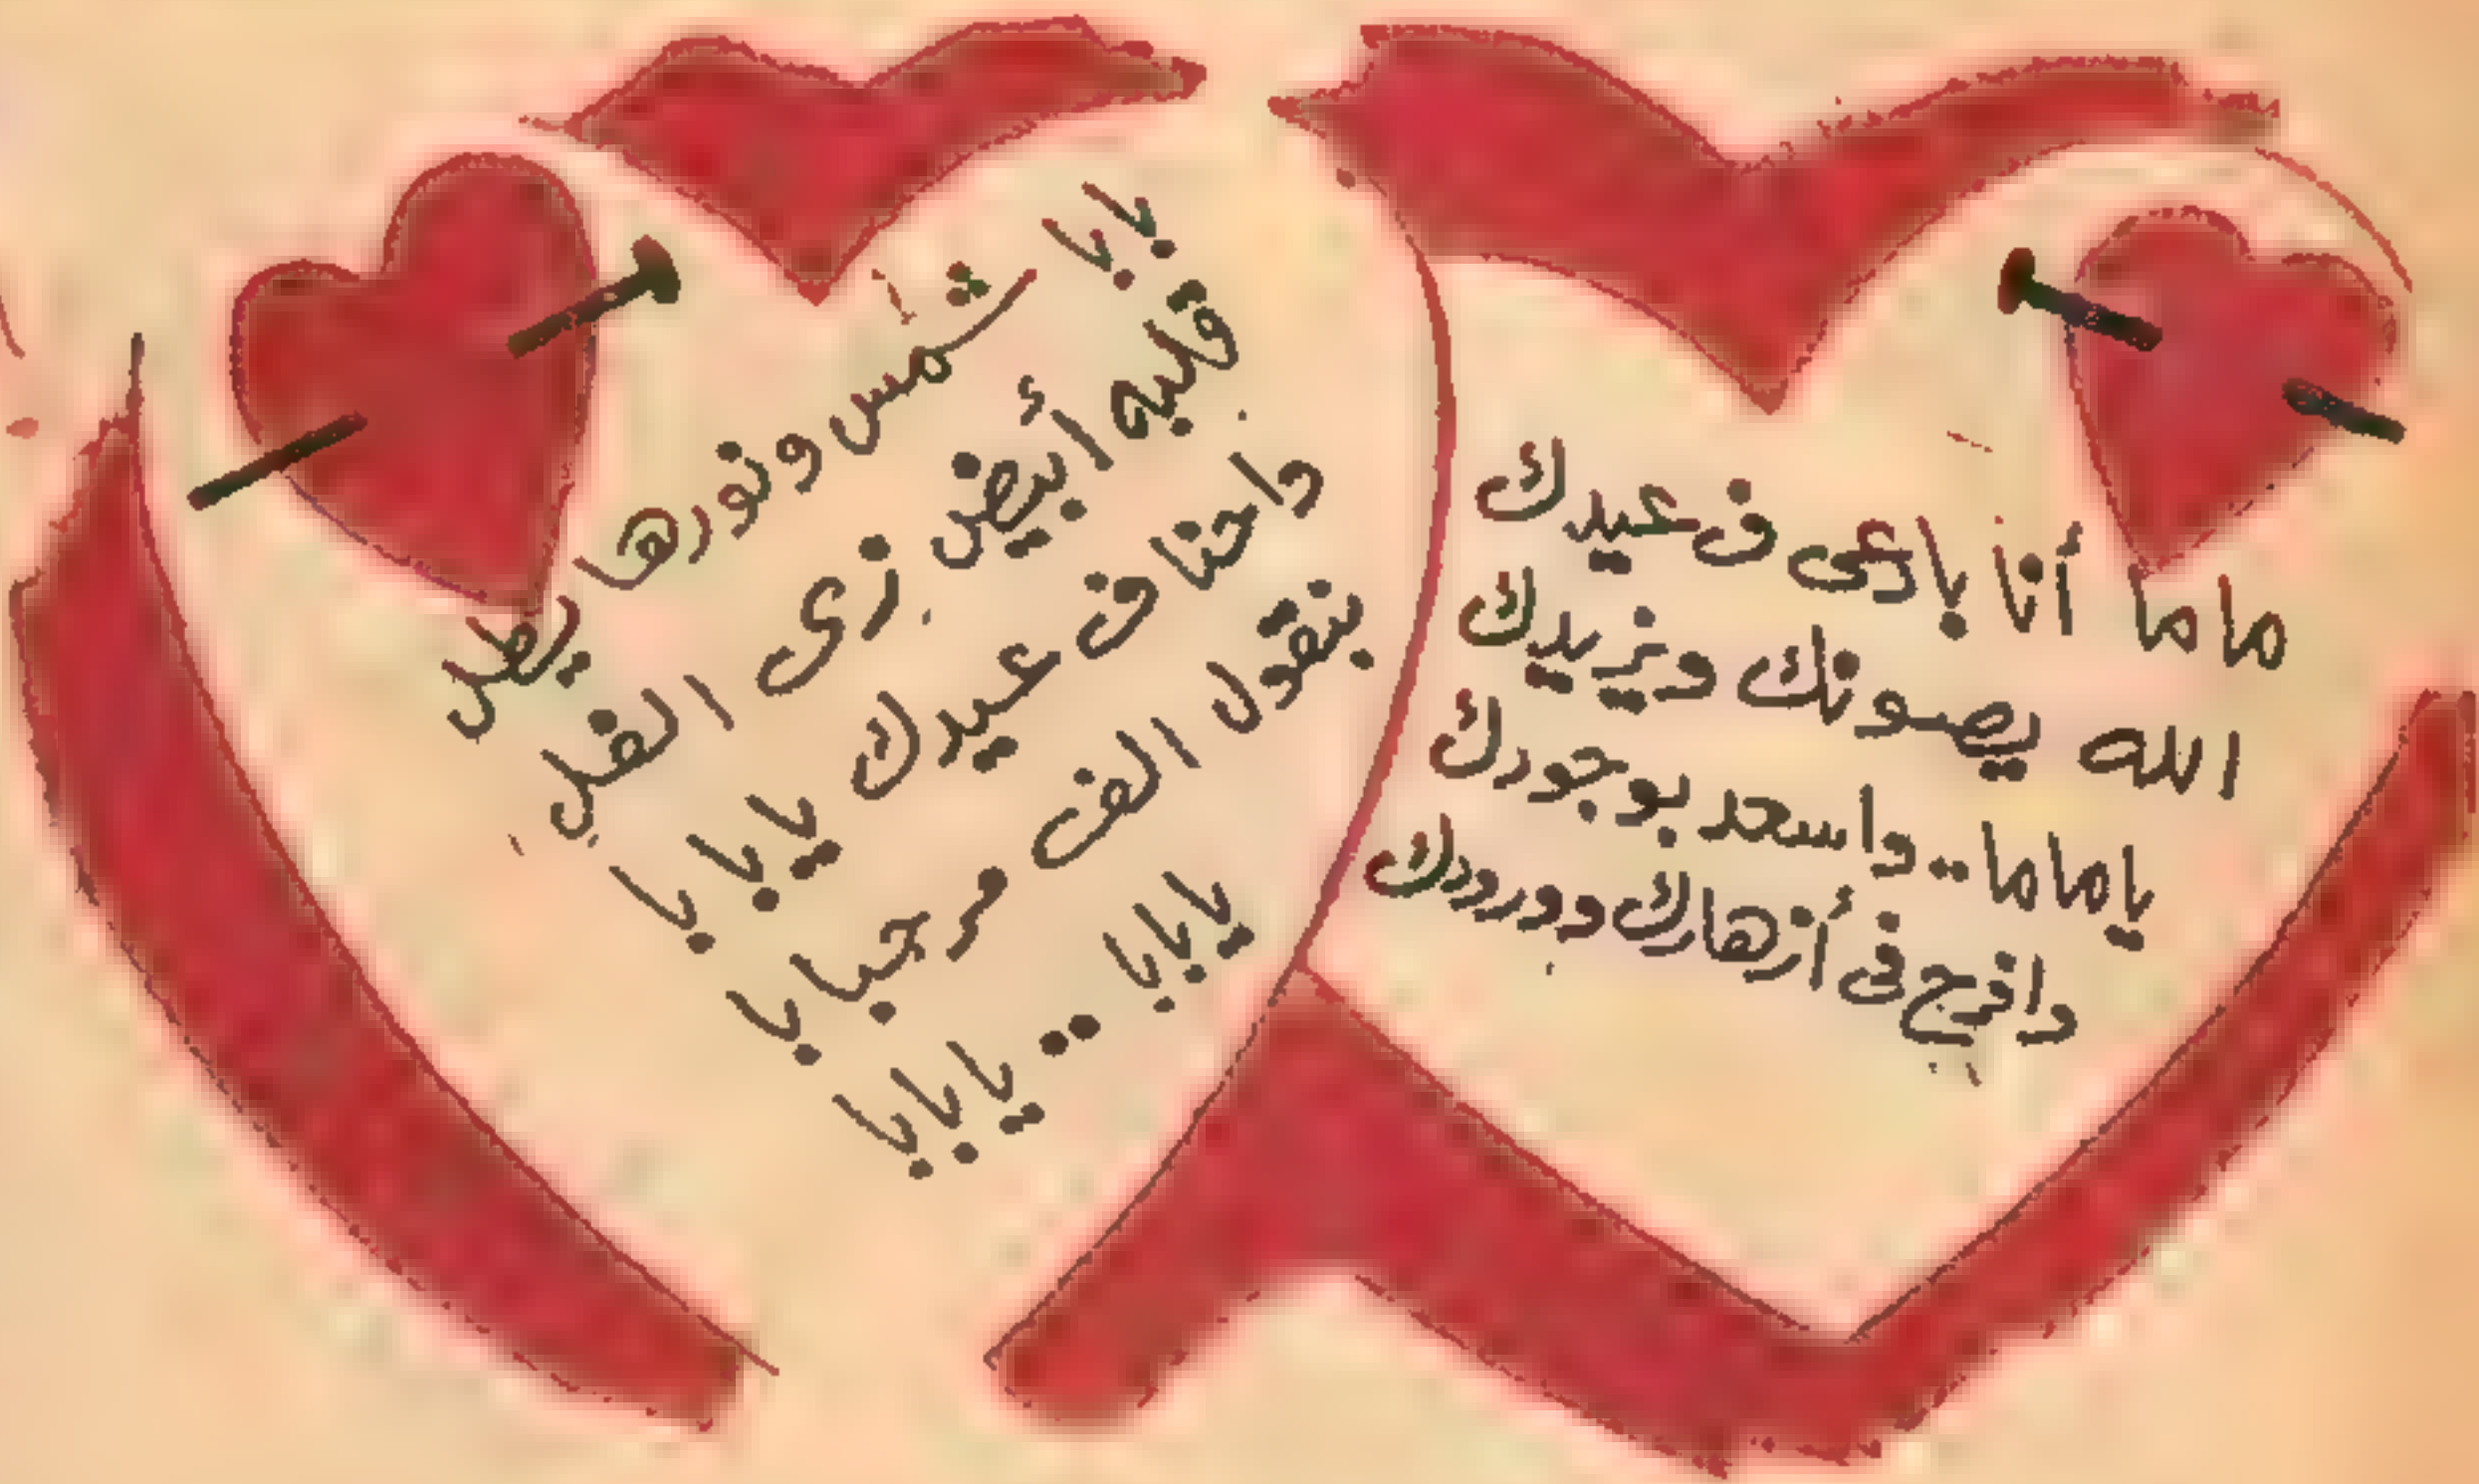 ماما أنا بادعى ف عيدك
الله يصونك ويزيدك
ياماما .. واسعد بوجودك
وافرح فى أزهارك وورودك
بابا شمس ونورها يطل
قلبه أبيض زى الفل
واحنا ف عيدك يابابا
بنقول الف مرحبابا
يابابا .. يابابا